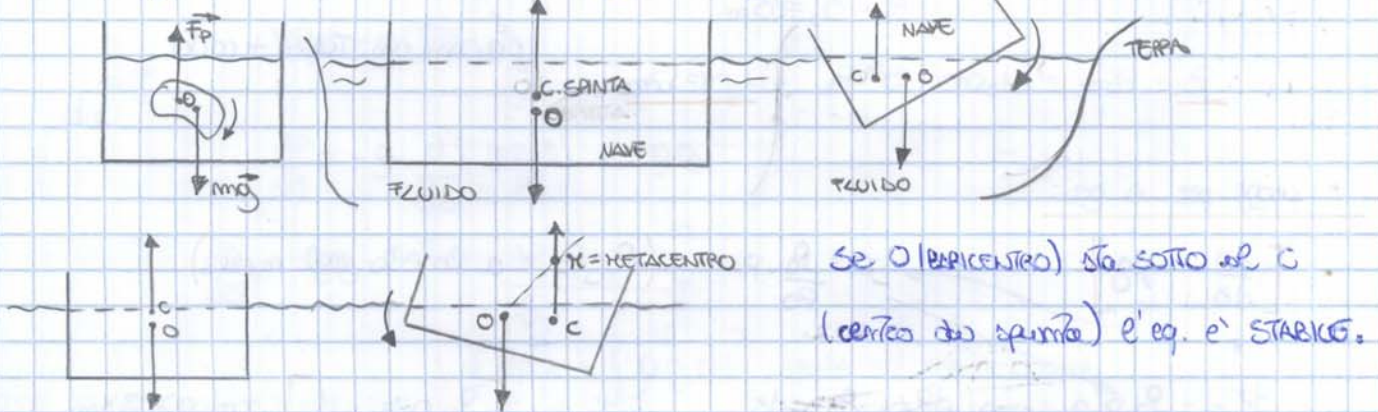 F⃗p
O
mg⃗
C. SPINTA
O
NAVE
FLUIDO
NAVE
C
O
TERRA
FLUIDO
C
O
M = METACENTRO
O
C
Se O (BARICENTRO) sta SOTTO al C
(centro di spinta) l'eq. è STABILE.